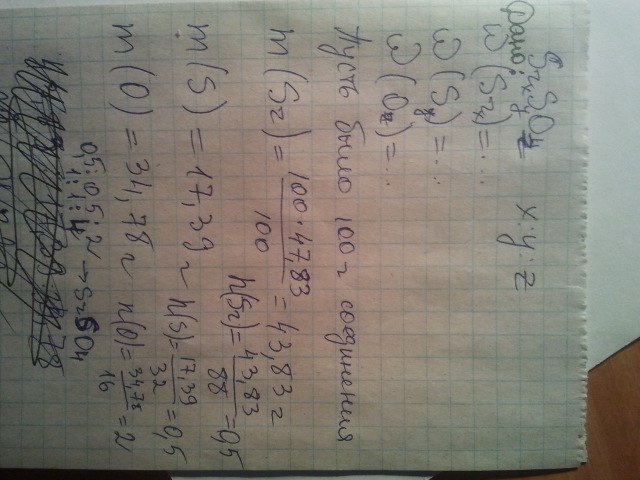 Дано: SrₓSᵧO_z x:y:z
ω(Srₓ)=...
ω(Sᵧ)=...
ω(O_z)=...
Пусть было 100 г соединения
m(Sr) = 100·47,83 / 100 = 43,83 г
n(Sr) = 43,83 / 88 = 0,5
m(S) = 17,39 г n(S) = 17,39 / 32 = 0,5
m(O) = 34,78 г n(O) = 34,78 / 16 = 2
0,5:0,5:2 → SrSO₄
1:1:4